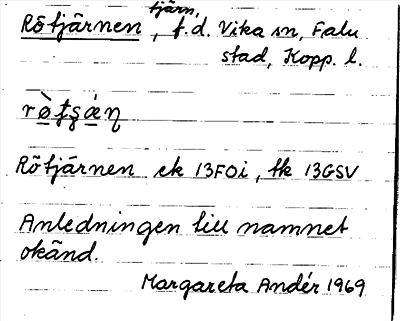 Rötjärnen, tjärn, f.d. Vika sn, Falu
stad, Kopp. l.
Rötjärnen ek 13FOi, tk 13GSV
Anledningen till namnet
okänd.
Margareta Andér 1969